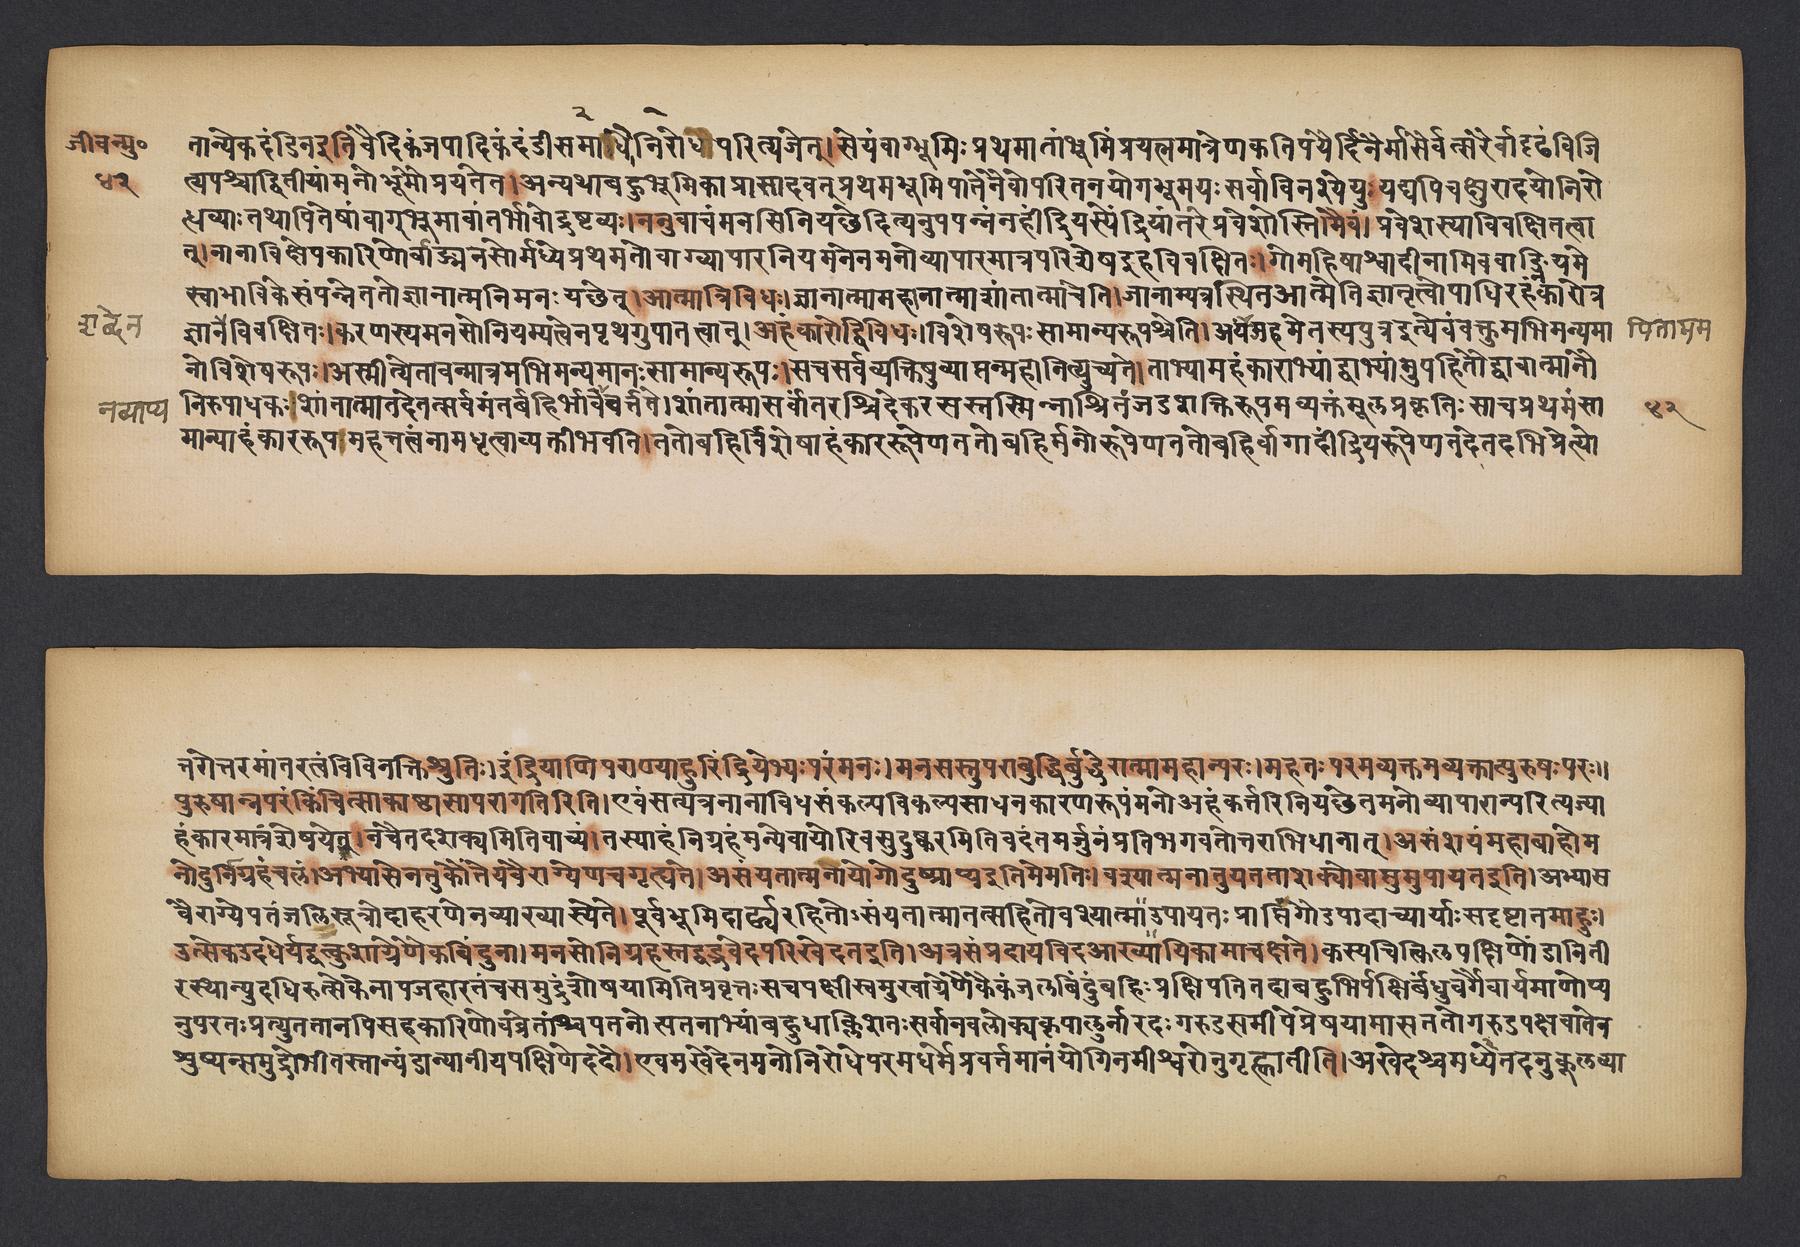 जीवन्मु०
४२
तान्येकदंडिनइतिवैदिकंजपादिकंदंडीसमाधौनिरोधेपरित्यजेत्।सेयंवाग्भूमिःप्रथमातांभूमिंप्रयत्नमात्रेणकतिपयैर्दिनैर्मासैर्वत्सरैर्वादृढंविजि
त्यपश्चाद्द्वितीयांमनोभूमौप्रयतेत।अन्यथाबहुभूमिकाप्रासादवत्प्रथमभूमिपातेनैवोपरितनयोगभूमयःसर्वाविनश्येयुःयद्यपिचक्षुरादयोनिरो
द्धव्याःतथापितेषांवाग्भूमावांतर्भावोद्रष्टव्यः।ननुवाचंमनसिनियछेदित्यनुपपन्नंनहींद्रियस्येंद्रियांतरेप्रवेशोस्तिमैवं।प्रवेशस्याविवक्षितत्वा
त्।नानाविक्षेपकारिणोर्वाङ्मनसोर्मध्येप्रथमतोवाग्व्यापारनियमनेनमनोव्यापारमात्रपरिशेषइहविवक्षितः।गोमहिषाश्वादीनामिववाङ्नियमे
स्वाभाविकेसंपन्नेततोज्ञानात्मनिमनःयछेत्।आत्मात्रिविधः।ज्ञानात्मामहानात्माशांतात्माचेति।जानाम्यत्रस्थितआत्मेतिज्ञातृत्वोपाधिरहंकारोत्र
शब्देन
ज्ञानेविवक्षितः।करणस्यमनसोनियम्यत्वेनपृथगुपातत्वात्।अहंकारोद्विविधः।विशेषरूपःसामान्यरूपश्चेति।अयमहमेतस्यपुत्रइत्येवंवक्तुमभिमन्यमा
पितामम
नोविशेषरूपः।अस्मीत्येतावन्मात्रमभिमन्यमानःसामान्यरूपः।सचसर्वव्यक्तिषुव्याप्तत्वान्महानित्युच्यते।ताभ्यामहंकाराभ्यांद्वाभ्यांमुपहितौद्वावात्मानौ
नव्याप्य
निरुपाधकः।शांतात्मातदेतत्सर्वमंतर्बहिर्भावेवर्त्तते।शांतात्मासर्वांतरश्चिदेकरसस्तस्मिन्नाश्रितंजडशक्तिरूपमव्यक्तंमूलप्रकृतिःसाचप्रथमंसा
४२
मान्याहंकाररूपंमहत्तत्वंनामधृत्वाव्यक्तीभवति।ततोबहिर्विशेषाहंकाररूपेणततोबहिर्मनोरूपेणततोबहिर्वागादींद्रियरूपेणतदेतदभिप्रेत्यो
त्तरोत्तरमांतरत्वंविविनक्तिश्रुतिः।इंद्रियाणिपराण्याहुरिंद्रियेभ्यःपरंमनः।मनसस्तुपराबुद्धिर्बुद्धेरात्मामहान्परः।महतःपरमव्यक्तमव्यक्तात्पुरुषःपरः॥
पुरुषान्नपरंकिंचित्साकाष्ठासापरागतिरिति।एवंसत्यत्रनानाविधसंकल्पविकल्पसाधनकारणरूपंमनोअहंकर्त्तरिनियछेत्मनोव्यापारान्परित्यज्या
हंकारमात्रंशेषयेत्।नचैतदशक्यमितिवाच्यं।तस्याहंनिग्रहंमन्येवायोरिवसुदुष्करमितिवदंतमर्जुनंप्रतिभगवतोत्तराभिधानात्।असंशयंमहाबाहोम
नोदुर्निग्रहंचलं।अभ्यासेनतुकौंतेयवैराग्येणचगृह्यते।असंयतात्मनायोगोदुष्प्राप्यइतिमेमतिः।वश्यात्मनातुयतताशक्योवाप्तुमुपायतइति।अभ्यास
वैराग्येपतंजलिसूत्रोदाहरणेनव्याख्यास्येते।पूर्वभूमिदार्ढ्यरहितोःसंयतात्मातत्सहितोवश्यात्माउपायतःप्राप्तिंगौडपादाचार्याःसदृष्टांतमाहुः।
उत्सेकउदधेर्यद्वत्कुशाग्रेणैकबिंदुना।मनसोनिग्रहस्तद्वद्भवेदपरिखेदतइति।अत्रसंप्रदायविदआख्यायिकामाचक्षते।कस्यचित्किलपक्षिणोंडानिती
रस्थान्युदधिरुत्सेकेनापजहारतंचसमुद्रंशोषयामितिप्रवृत्तःसचपक्षीस्वमुखाग्रेणैकैकंजलबिंदुंबहिःप्रक्षिपतितदाबहुभिर्पक्षिर्बंधुवर्गैर्वार्यमाणोप्य
नुपरतःप्रत्युततानपिसहकारिणोवव्रेतांश्चपतनोत्पतनाभ्यांबहुधाक्लिशतःसर्वानवलोक्यकृपालुर्नारदःगरुडसमीपेप्रेषयामासततोगरुडपक्षवातेन
शुष्यन्समुद्रोभीतस्तान्यंडान्यानीयपक्षिणेददौ।एवमखेदेनमनोनिरोधेपरमधर्मेप्रवर्त्तमानंयोगिनमीश्वरोनुगृह्णातीति।अखेदश्चमध्येतदनुकूलव्या